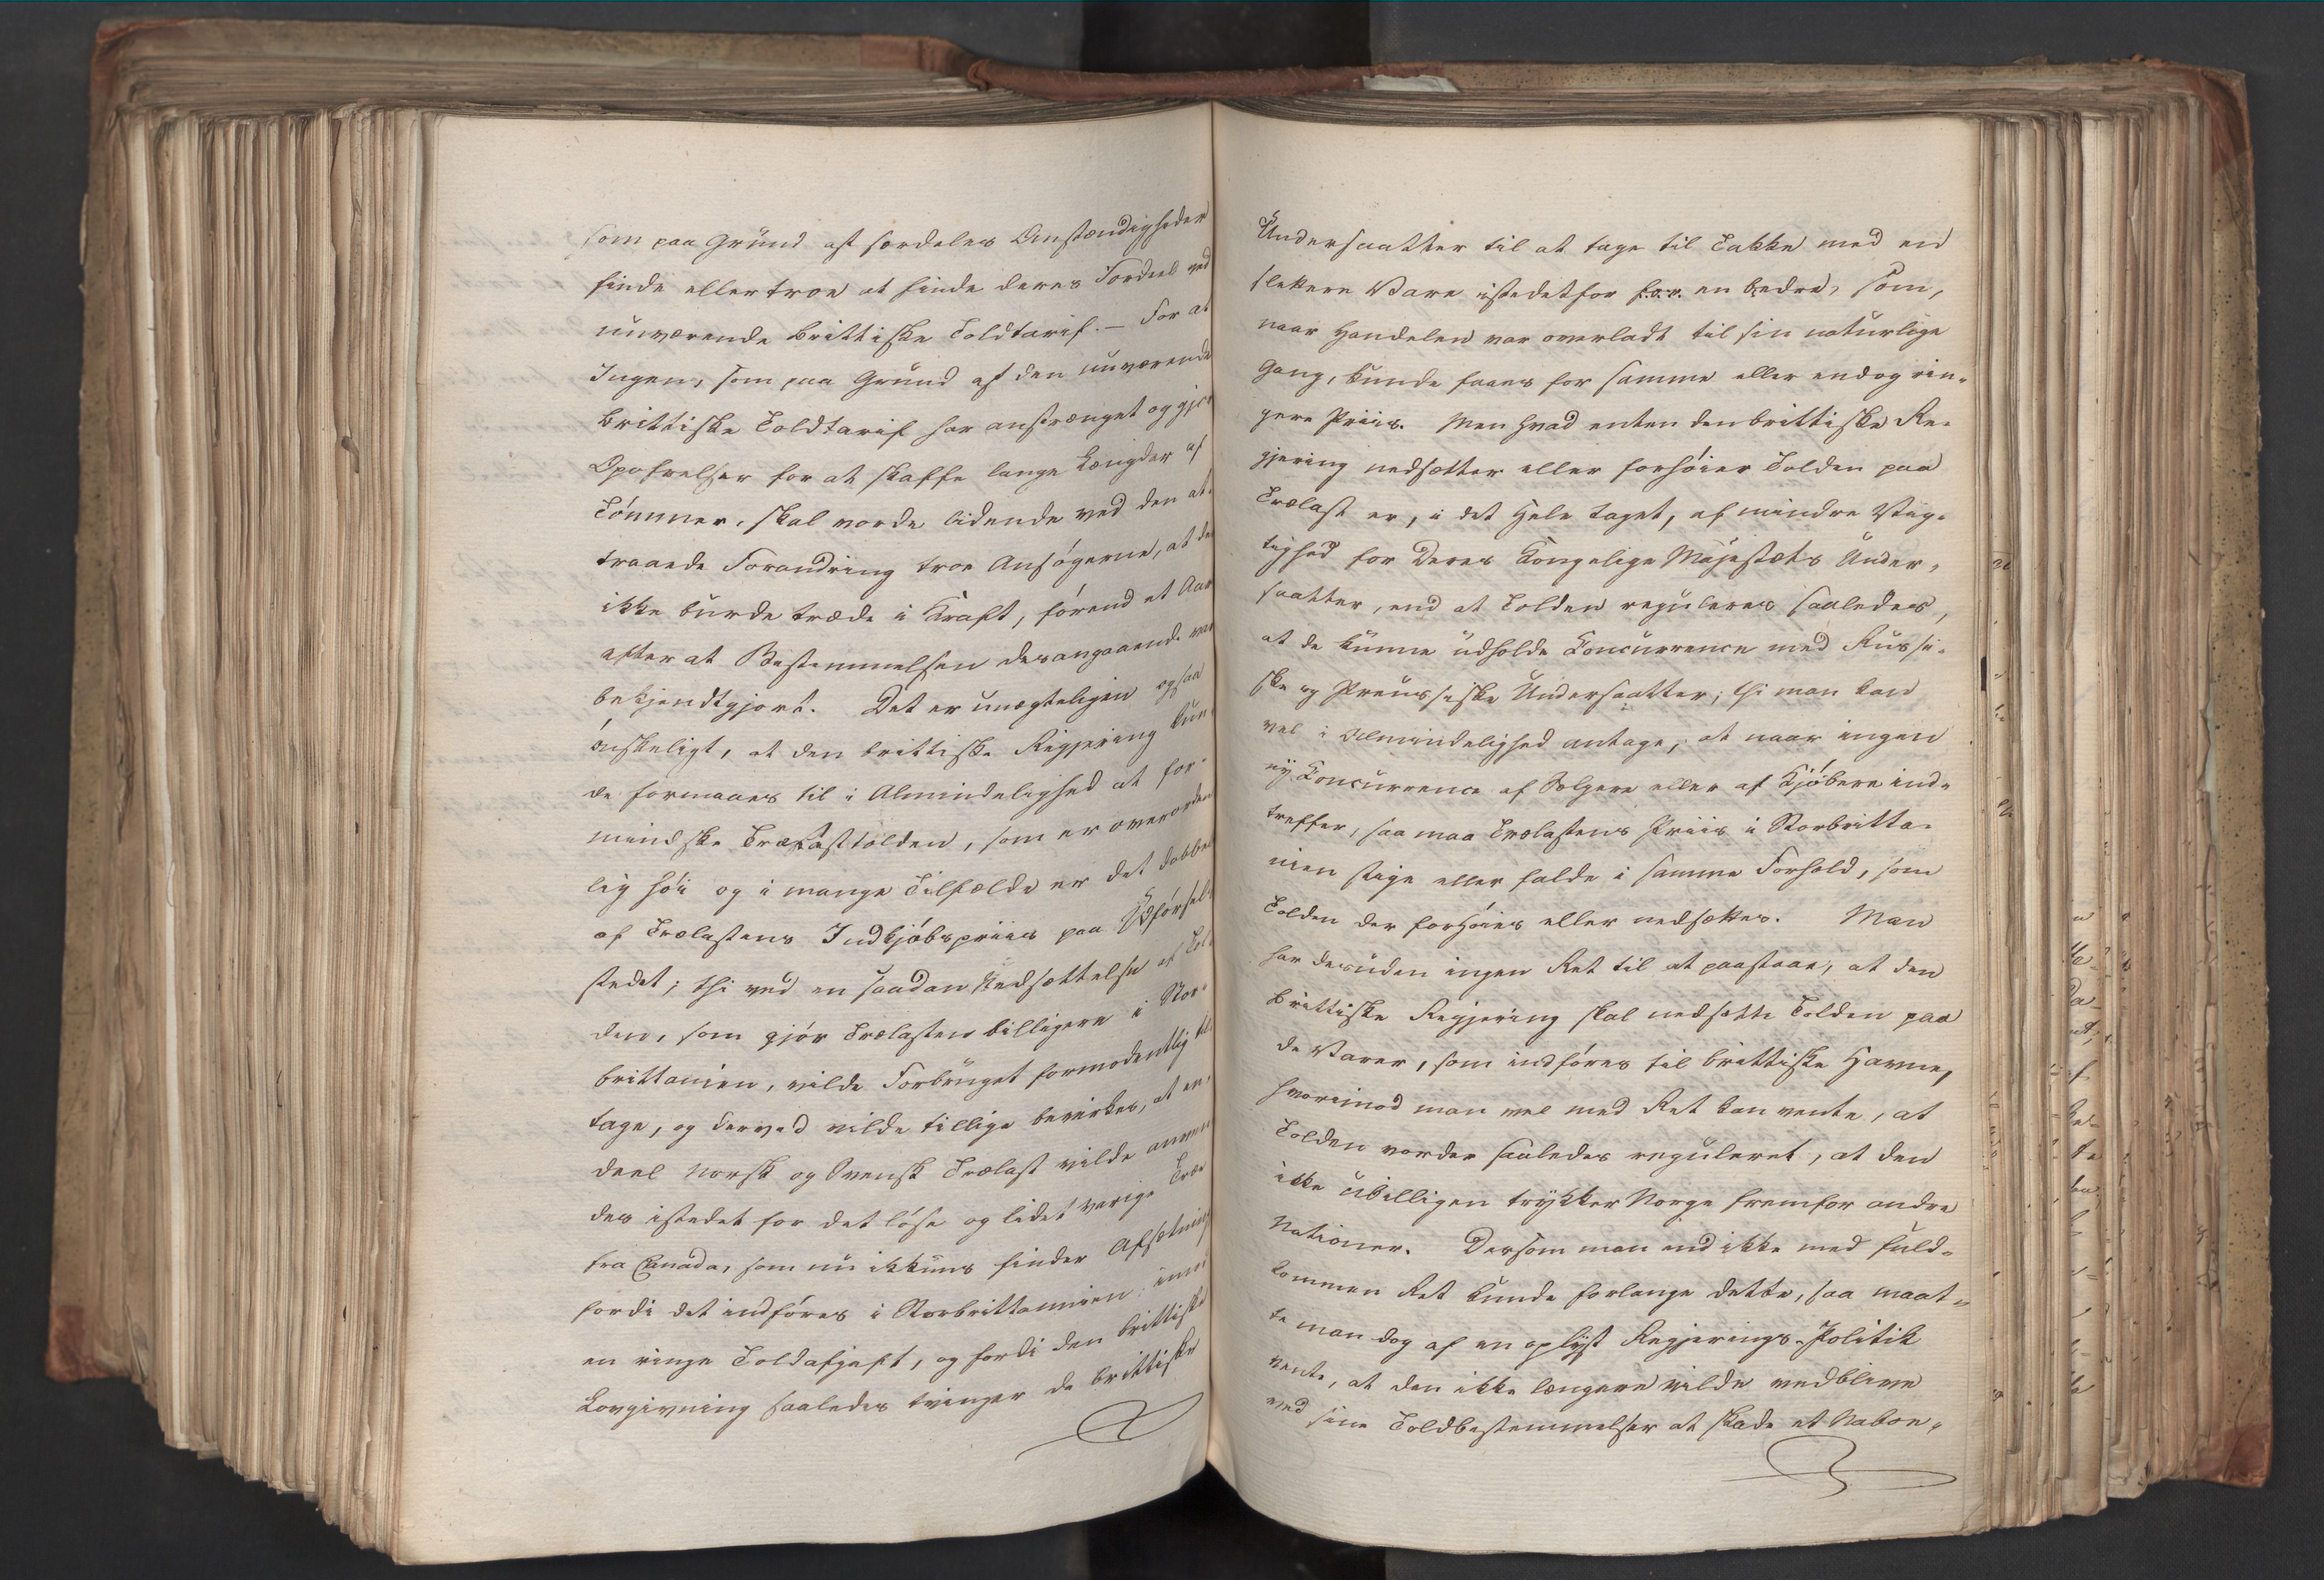 som paa Grund af særdeles Omstændigheder
finde eller troe at finde deres Fordeel ved
nuværende brittiske Toldtarif. – For at
Ingen, som paa Grund af den nuværende
brittiske Toldtarif har anstrænget og gjort
Opofrelser for at skaffe lange Længder af
Tømmer, skal vorde lidende ved den at-
traaede Forandring troe Ansøgerne, at den
ikke burde træde i Kraft, førend et Aar
efter at Bestemmelsen desangaaende var
bekjendtgjort. Det er unægteligen ogsaa
ønskeligt, at den brittiske Regjering kun-
de formaaes til i Almindelighed at for-
mindske Trælasttolden, som er overorden
lig høi og i mange Tilfælde er det dobbel
af Trælastens Indkjøbspriis paa Udførsel-
stedet; thi ved en saadan Nedsættelse af Tol
den, som gjør Trælasten billigere i Stor-
brittanien, vilde Forbruget formodentlig til
tage, og derved vilde tillige bevirkes, at en
deel Norsk og Svensk Trælast vilde anven
des istedet for det løse og lidet varige Træe
fra Canada, som nu ikkuns finder Afsætning
fordi det indføres i Storbrittannien imod
en ringe Toldafgift, og fordi den brittiske
Lovgivning saaledes tvinger de brittiske
Undersaatter til at tage til Takke med en
slettere Vare istedetfor for en bedre, som,
naar Handelen var overladt til sin naturlige
Gang, kunde faaes for samme eller endog rin-
gere Priis. Men hvad enten den brittiske Re-
gjering nedsætter eller forhøier Tolden paa
Trælast er, i det Hele taget, af mindre Vig-
tighed for Deres Kongelige Majestæts Under-
saatter, end at Tolden reguleres saaledes,
at de kunne udholde Concurrence med Russi-
ske og Preussiske Undersaatter; thi man kan
vel i Almindelighed antage, at naar ingen
ny Concurrence af Sælgere eller af Kjøbere ind-
treffer, saa maa Trælastens Priis i Storbritta-
nien stige eller falde i samme Forhold, som
Tolden der forhøies eller nedsættes. Man
har desuden ingen Ret til at paastaae, at den
brittiske Regjering skal nedsætte Tolden paa
de Varer, som indføres til brittiske Havne,
hvorimod man vel med Ret kan vente, at
Tolden vorder saaledes reguleret, at den
ikke ubilligen trykker Norge fremfor andre
Nationer. Dersom man end ikke med fuld-
kommen Ret kunde forlange dette, saa maat-
te man dog af en oplyst Regjerings-Politik
vente, at den ikke længere vilde vedblive
ved sine Toldbestemmelser at skade et Naboe-